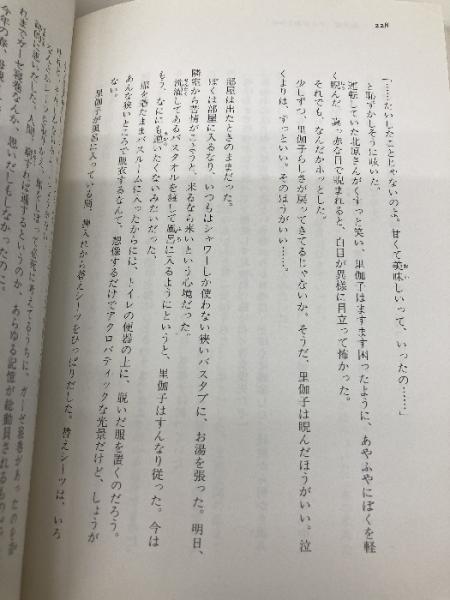 228
「……たいしたことじゃないのよ。甘くて美味しいって、いったの……」
と恥ずかしそうに呟いた。
運転していた北原さんがくすっと笑い、里伽子はますます困ったように、あやふやにぼくを軽
く睨んだ。真っ赤な目で睨まれると、白目が異様に目立って怖かった。
それでも、なんだかホッとした。
少しずつ、里伽子らしさが戻ってきてるじゃないか。そうだ、里伽子は睨んだほうがいい。泣
くよりは、ずっといい。そのほうがいい……。
部屋は出たときのままだった。
ぼくは部屋に入るなり、いつもはシャワーしか使わない狭いバスタブに、お湯を張った。明日、
隣室から苦情がこようと、来るなら来いという心境だった。
洗濯してあるバスタオルを渡して風呂に入るようにというと、里伽子はすんなり従った。今は
もう、なににも逆いたくないみたいだった。
服を着たままバスルームに入ったからには、トイレの便器の上に、脱いだ服を置くのだろう。
あんな狭いところで脱衣するなんて、想像するだけでアクロバティックな光景だけど、しょうが
ない。
里伽子が風呂に入っている間、押入れから替えシーツをひっぱりだした。替えシーツは、いろ